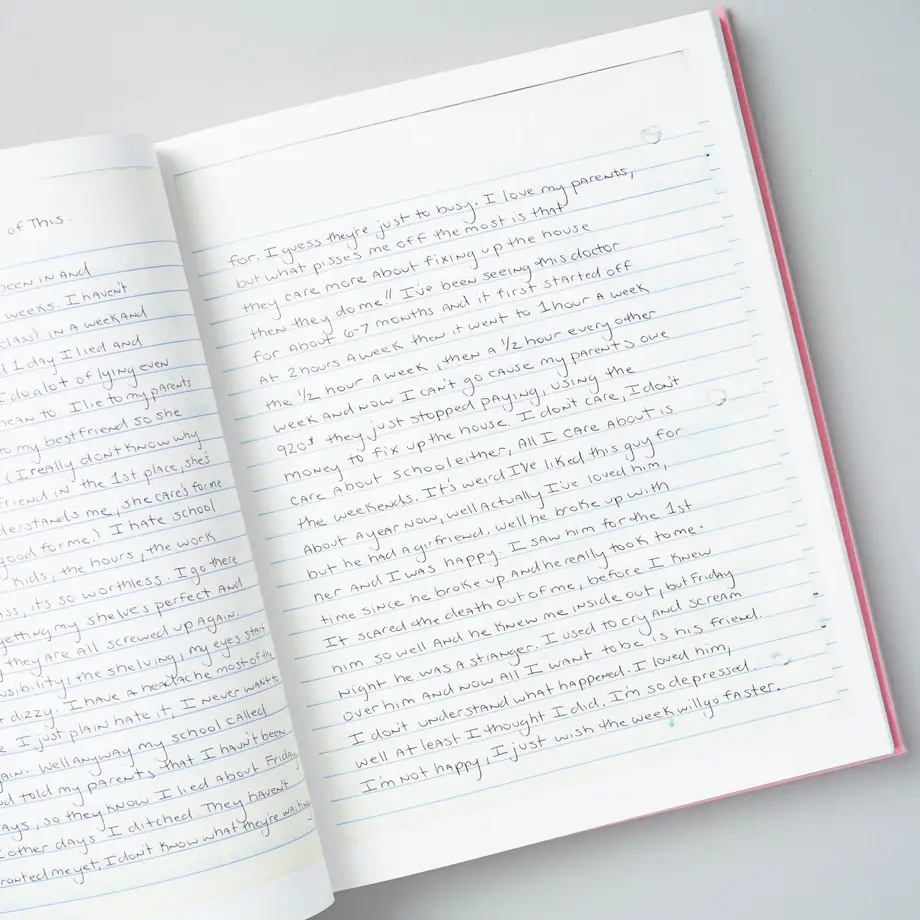 of This.
been in and
weeks. I haven't
class) in a week and
1 day I lied and
I do a lot of lying even
mean to. I lie to my parents
to my best friend so she
(I really dont know why
friend in the 1st place, she's
derstands me, she care's for me
good for me.) I hate school
kids, the hours, the work
ass, its so worthless. I go there
getting my shelves perfect and
they are all screwed up again.
nsibility, the shelving, my eyes start
dizzy. I have a headache most of the
e I just plain hate it, I never want to
ain. Well anyway my school called
d told my parents that I havn't been
ays, so they know I lied about Friday,
other days I ditched. They haven't
ronted me yet, I don't know what they're waiting
for. I guess they're just to busy. I love my parents,
but what pisses me off the most is that
they care more about fixing up the house
then they do me!! I've been seeing this doctor
for about 6-7 months and it first started off
at 2 hours a week then it went to 1 hour a week
the ½ hour a week, then a ½ hour every other
week and now I can't go cause my parents owe
920$ they just stopped paying, using the
money to fix up the house. I don't care, I don't
care about school either, all I care about is
the weekends. It's weird I've liked this guy for
about a year now, well actually I've loved him,
but he had a girfriend. well he broke up with
her and I was happy. I saw him for the 1st
time since he broke up and he really took to me.
It scared the death out of me, before I knew
him so well and he knew me inside out, but friday
night he was a stranger. I used to cry and scream
over him and now all I want to be is his friend.
I don't understand what happened. I loved him,
well at least I thought I did. I'm so depressed.
I'm not happy, I just wish the week will go faster.